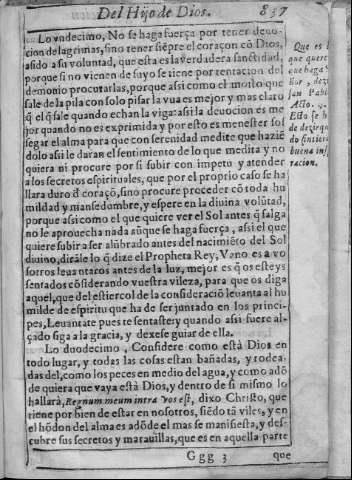 Del Hijo de Dios. 837
Lo vndecimo, No se haga fuerça por tener deuo-
cion de lagrimas, sino tener siẽpre el coraçon cõ Dios,
asido a su voluntad, que esta es la verdadera sanctidad,
porque si no vienen de suyo se tiene por tentacion del
demonio procurarlas, porque assi como el mosto que
sale de la pila con solo pisar la vua es mejor y mas claro
q̃ el q̃ sale quando echan la viga: assi la deuocion es me
jor quando no es exprimida y por esto es menester sos
segar el alma para que con serenidad medite que haziẽ
dolo assi le daran el sentimiento de lo que medita y no
quiera ni procure por si subir con impetu y atender
a los secretos espirituales, que por el proprio caso se ha
llara duro đ coraçõ, sino procure proceder cõ toda hu
mildad y mansedumbre, y espere en la diuina volũtad,
porque assi como el que quiere ver el Sol antes q̃ salga
no le aprouecha nada aũque se haga fuerça, assi el que
quiere subir a ser alũbrado antes del nacimiẽto del Sol
diuino, dirále lo q̃ dize el Propheta Rey, Vano es a vo
sotros leuantaros antes de la luz, mejor es q̃ os esteys
sentados cõsiderando vuestra vileza, para que os diga
aquel, que del estiercol de la consideraciõ leuanta al hu
milde de espiritu que ha de ser juntado en los princi-
pes, Leuantate pues te sentaste: y quando assi fuere al-
çado siga a la gracia, y dexese guiar de ella.
Lo duodecimo, Considere como está Dios en
todo lugar, y todas las cosas estan bañadas, y rodea-
das del, como los peces en medio del agua, y como adõ
de quiera que vaya està Dios, y dentro de si mismo lo
hallarà, Regnum meum intra vos est, dixo Christo, que
tiene por bien de estar en nosotros, siẽdo tã viles, y en
el hõdon del alma es adõde el mas se manifiesta, y des-
cubre sus secretos y marauillas, que es en aquella parte
Ggg 3 que
Que es l
que quere
que haga
ñor, dez
san Pabl
Acto. 9.
Esto se h